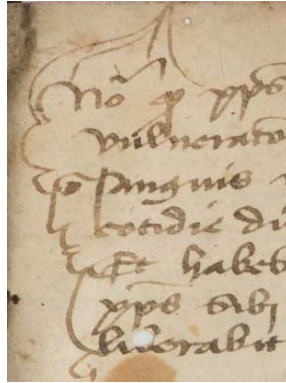 Nō ꝙ xp̄s
vulnerato
sanguis
cotidie du
Et habet
xp̄s tibi
liberabit